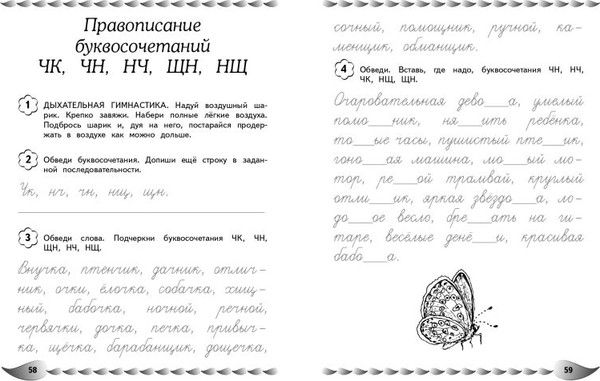 Правописание
буквосочетаний
ЧК, ЧН, НЧ, ЩН, НЩ
1 ДЫХАТЕЛЬНАЯ ГИМНАСТИКА. Надуй воздушный ша-
рик. Крепко завяжи. Набери полные лёгкие воздуха.
Подбрось шарик и, дуя на него, постарайся продер-
жать в воздухе как можно дольше.
2 Обведи буквосочетания. Допиши ещё строку в задан-
ной последовательности.
Чк, нч, чн, нщ, щн.
3 Обведи слова. Подчеркни буквосочетания ЧК, ЧН,
ЩН, НЧ, НЩ.
Внучка, птенчик, дачник, отлич-
ник, очки, ёлочка, собачка, хищ-
ный, бабочка, ночной, речной,
червячки, дочка, печка, привыч-
ка, щёчка, барабанщик, дощечка,
58
сочный, помощник, ручной, ка-
менщик, обманщик.
4 Обведи. Вставь, где надо, буквосочетания ЧН, НЧ,
ЧК, НЩ, ЩН.
Очаровательная дево___а, умелый
помо___ник, ня___ить ребёнка,
то___ые часы, пушистый пте___ик,
гоно___ая машина, мо___ый мо-
тор, ре___ой трамвай, круглый
отли___ик, яркая звёздо___а, ло-
до___ое весло, бре___ать на ги-
таре, весёлые денё___и, красивая
бабо___а.
59